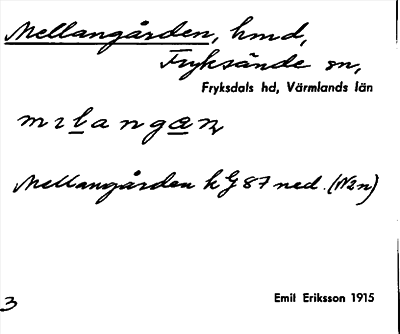 Mellangården, hmd,
Fryksände sn,
Fryksdals hd, Värmlands län
Mellangården k G 87 ned. (N2n)
Emil Eriksson 1915
3